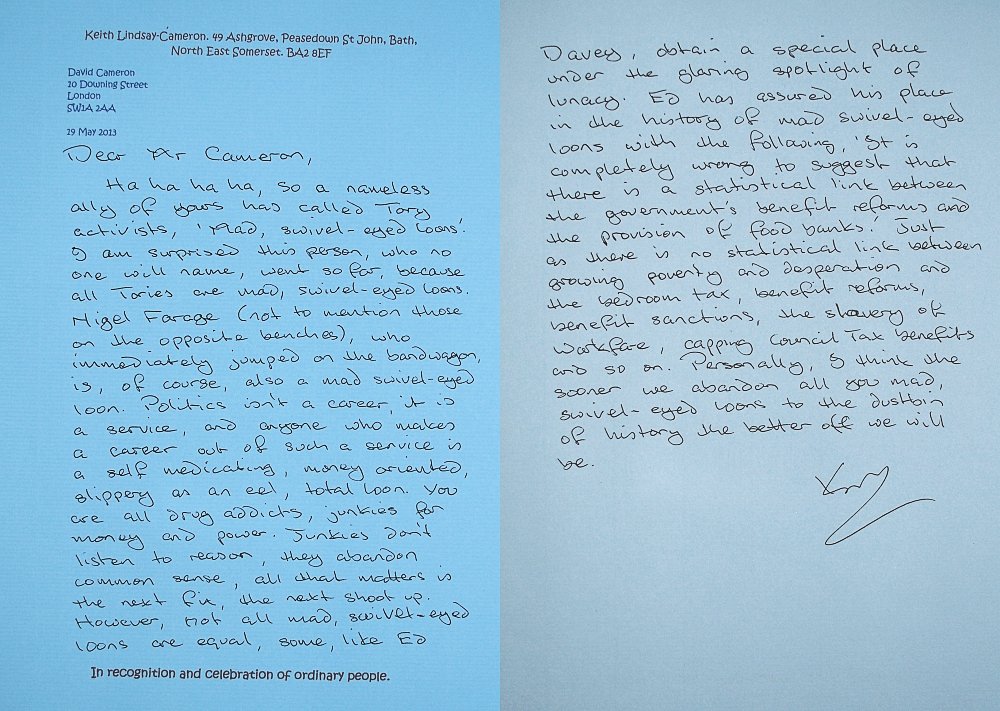 Keith Lindsay-Cameron. 49 Ashgrove, Peasedown St John, Bath,
North East Somerset. BA2 8EF
David Cameron
10 Downing Street
London
SW1A 2AA
19 May 2013
Dear Mr Cameron,
Ha ha ha ha, so a nameless
ally of yours has called Tory
activists, 'Mad, swivel-eyed loons.'
I am surprised this person, who no
one will name, went so far, because
all Tories are mad, swivel-eyed loons.
Nigel Farage (not to mention those
on the opposite benches), who
immediately jumped on the bandwagon,
is, of course, also a mad swivel-eyed
loon. Politics isn't a career, it is
a service, and anyone who makes
a career out of such a service is
a self medicating, money oriented,
slippery as an eel, total loon. You
are all drug addicts, junkies for
money and power. Junkies don't
listen to reason, they abandon
common sense, all that matters is
the next fix, the next shoot up.
However, not all mad, swivel-eyed
loons are equal, some, like Ed
In recognition and celebration of ordinary people.
Davey, obtain a special place
under the glaring spotlight of
lunacy. Ed has assured his place
in the history of mad swivel-eyed
loons with the following, 'It is
completely wrong to suggest that
there is a statistical link between
the government's benefit reforms and
the provision of food banks.' Just
as there is no statistical link between
growing poverty and desperation and
the bedroom tax, benefit reforms,
benefit sanctions, the slavery of
workfare, capping Council Tax benefits
and so on. Personally, I think the
sooner we abandon all you mad,
swivel-eyed loons to the dustbin
of history the better off we will
be.